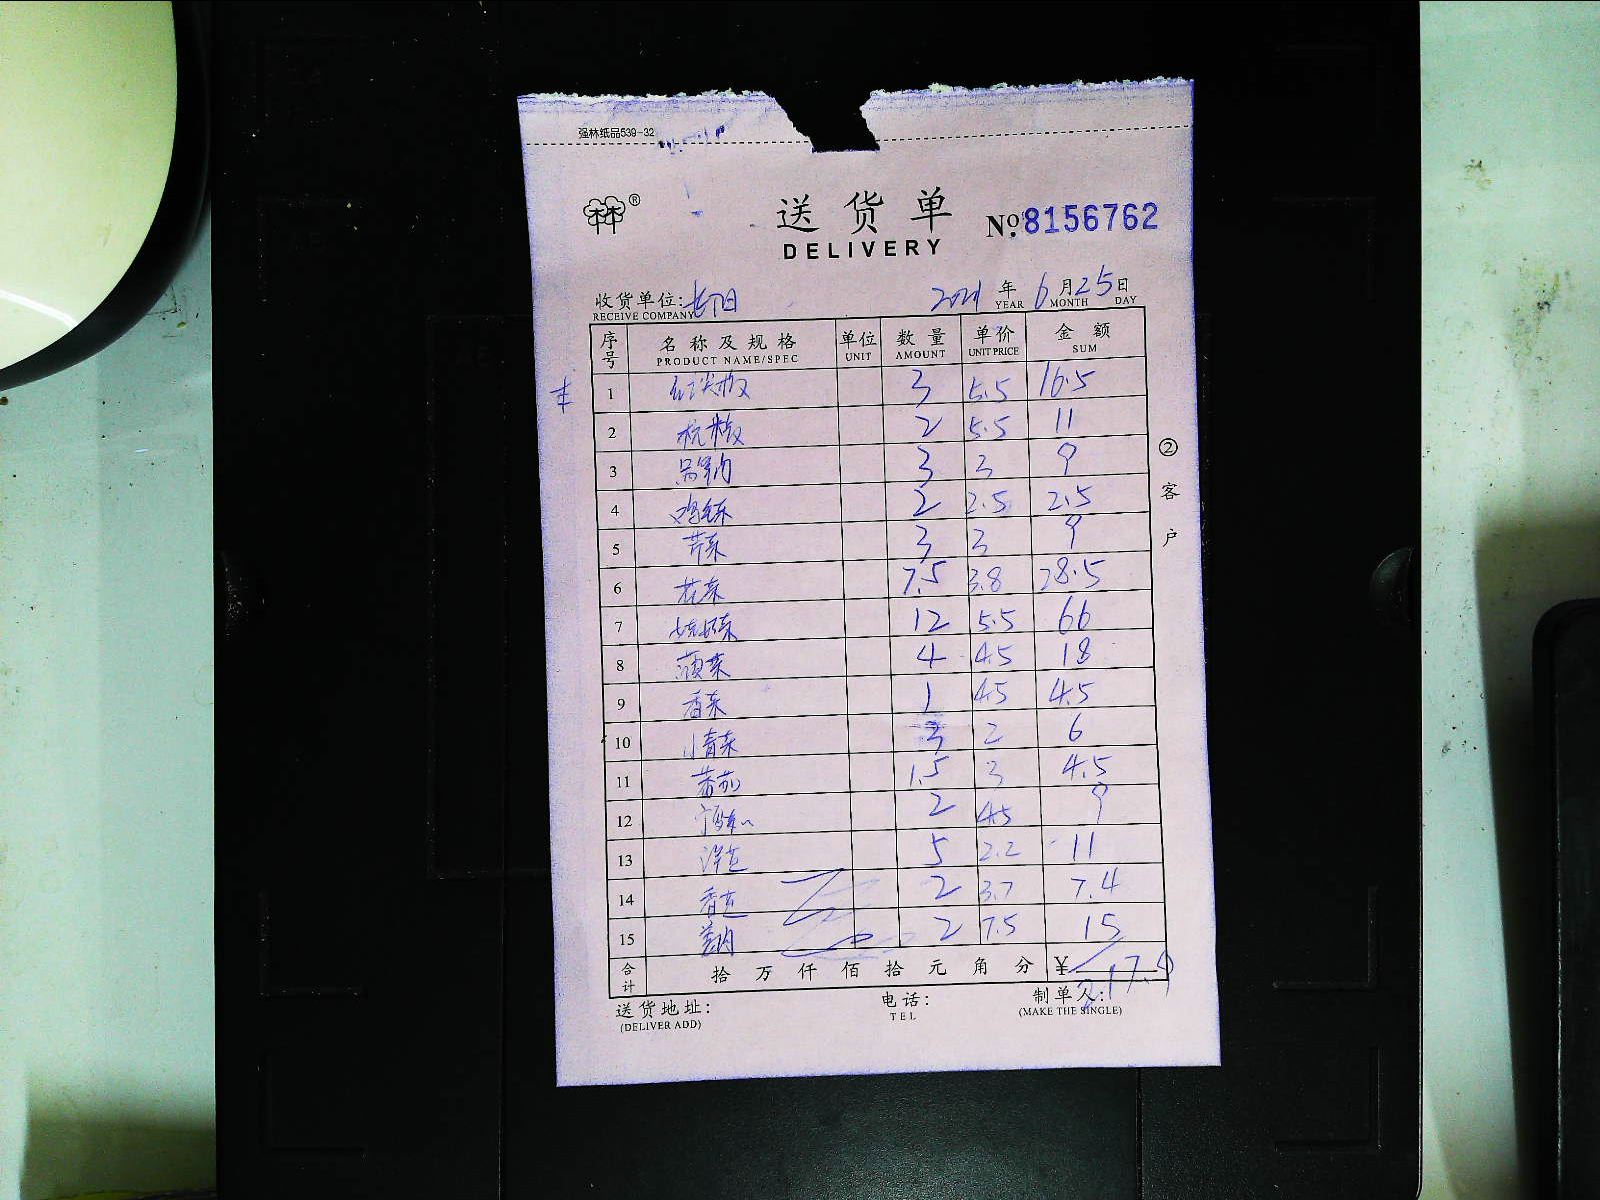 强林纸品539-32
林林®
送货单 №8156762
DELIVERY
收货单位: 2021年6月25日
RECEIVE COMPANY YEAR MONTH DAY
序号 名称及规格 单位 数量 单价 金额
PRODUCT NAME/SPEC UNIT AMOUNT UNIT PRICE SUM
1 红尖椒 3 5.5 16.5
2 杭椒 2 5.5 11
3 3 3 9
4 2 2.5 2.5
5 芹菜 3 3 9
6 花菜 7.5 3.8 28.5
7 12 5.5 66
8 菠菜 4 4.5 18
9 香菜 1 4.5 4.5
10 小青菜 3 2 6
11 番茄 1.5 3 4.5
12 2 4.5 9
13 洋芋 5 2.2 11
14 2 3.7 7.4
15 2 7.5 15
合计 拾万仟佰拾元角分 ¥217.9
②客户
送货地址: 电话: 制单人:
(DELIVER ADD) TEL (MAKE THE SINGLE)